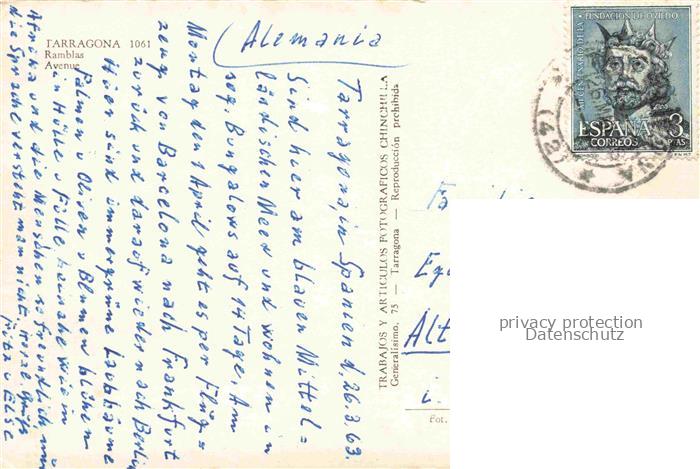 TARRAGONA 1061
Ramblas
Avenue
(Alemania
Tarragona, in Spanien d. 26.3.63.
Sind hier am blauen Mittel=
ländischen Meer und wohnen in
sog. Bungalows auf 14 Tage. Am
Montag den 1 April geht es per Flug=
zeug von Barcelona nach Frankfurt
zurück und darauf wieder nach Berlin
Hier sind immergrüne Laubbäume
Palmen u Oliven u Blumen blühen
in Hülle u Fülle beinahe wie in
Afrika und die Menschen so freundlich nur
die Sprache versteht man nicht. Grüße
u ELSE
TRABAJOS Y ARTICULOS FOTOGRAFICOS CHINCHILLA
Generalísimo, 75 — Tarragona — Reproducción prohibida
XII CENTENARIO DE LA FUNDACION DE OVIEDO
ESPAÑA 3
CORREOS PTAS
(42)
Alt
i.
Fot.
privacy protection
Datenschutz